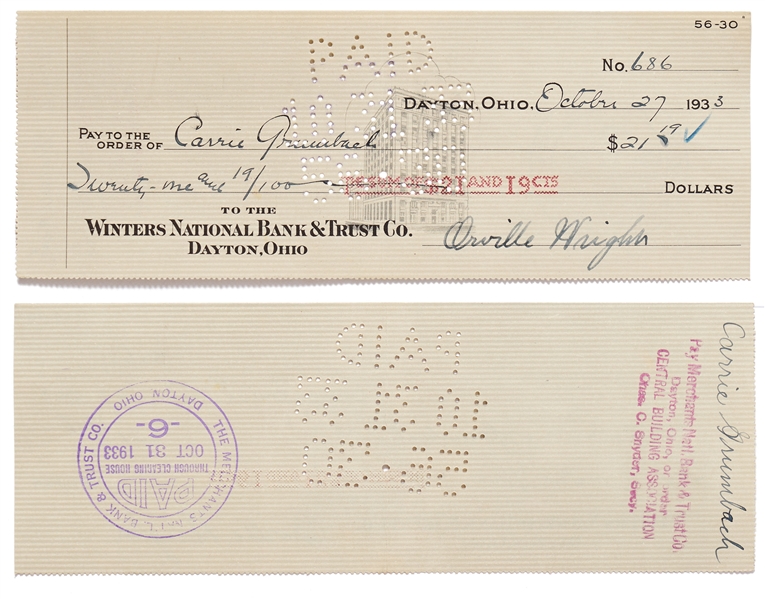 56-30
PAID
No. 686
DAYTON, OHIO, October 27 1933
PAY TO THE ORDER OF Carrie Grumbach $21 19
Twenty-one and 19/100 DOLLARS
$21 AND 19 CTS
TO THE
WINTERS NATIONAL BANK & TRUST CO.
DAYTON, OHIO
Orville Wright
PAID
10 31 33
56-30
THE MERCHANTS NAT'L. BANK & TRUST CO.
DAYTON OHIO
PAID
THROUGH CLEARING HOUSE
OCT 31 1933
-6-
Pay Merchants Natl. Bank & Trust Co.
Dayton, Ohio, or order
CENTRAL BUILDING ASSOCIATION
Chas. C. Snyder, Secy.
Carrie Grumbach